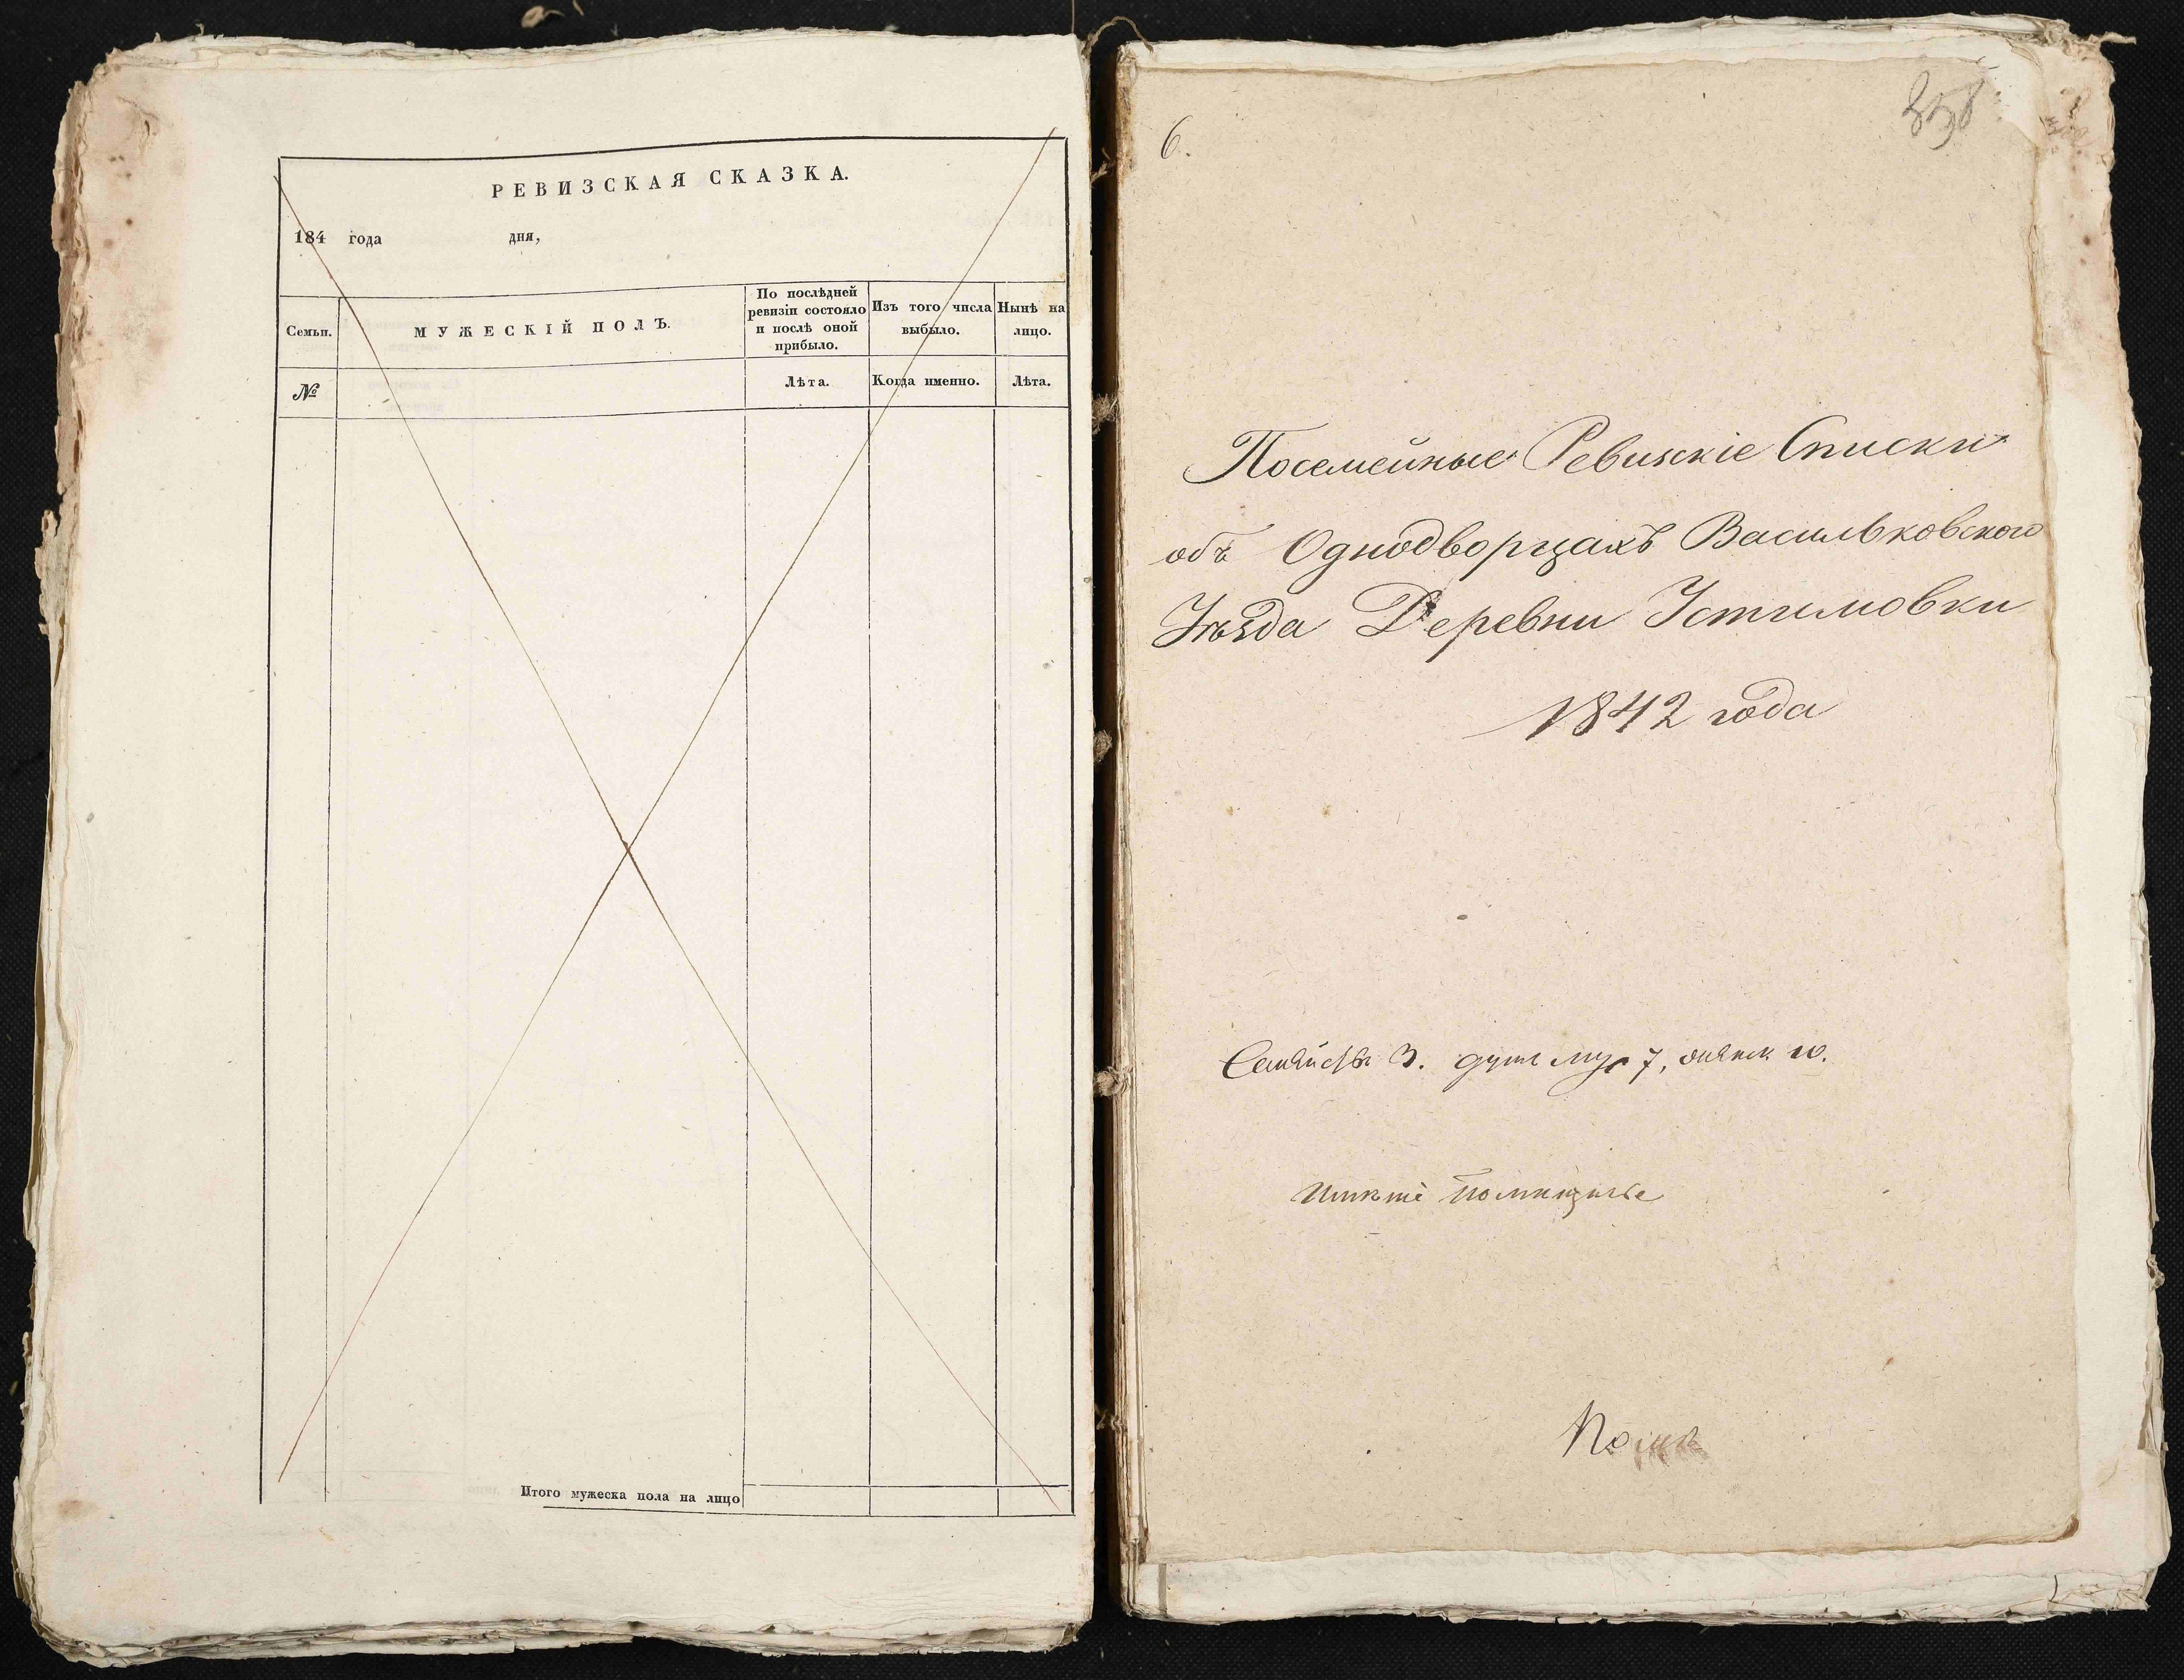 РЕВИЗСКАЯ СКАЗКА.
184 года дня,
Семьи.
МУЖЕСКІЙ ПОЛЪ.
По послѣдней
ревизіи состояло
и послѣ оной
прибыло.
Изъ того числа
выбыло.
Нынѣ на
лицо.
№
Лѣта.
Когда именно.
Лѣта.
Итого мужеска пола на лицо
6.
358
Посемейные Ревизкіе Списки
объ Однодворцахъ Васильковского
Уѣзда Деревни Устимовки
1842 года
Семействъ 3. душъ муж 7, женск. 10.